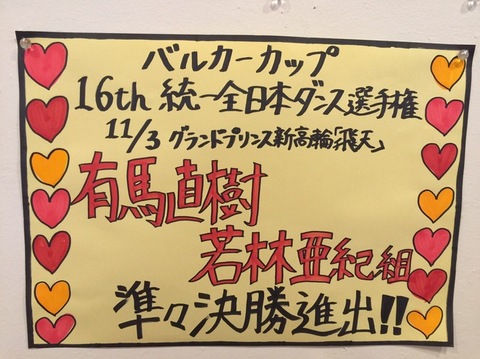 バルカーカップ
16th 統一全日本ダンス選手権
11/3 グランドプリンス新高輪「飛天」
有馬直樹
若林亜紀組
準々決勝進出!!